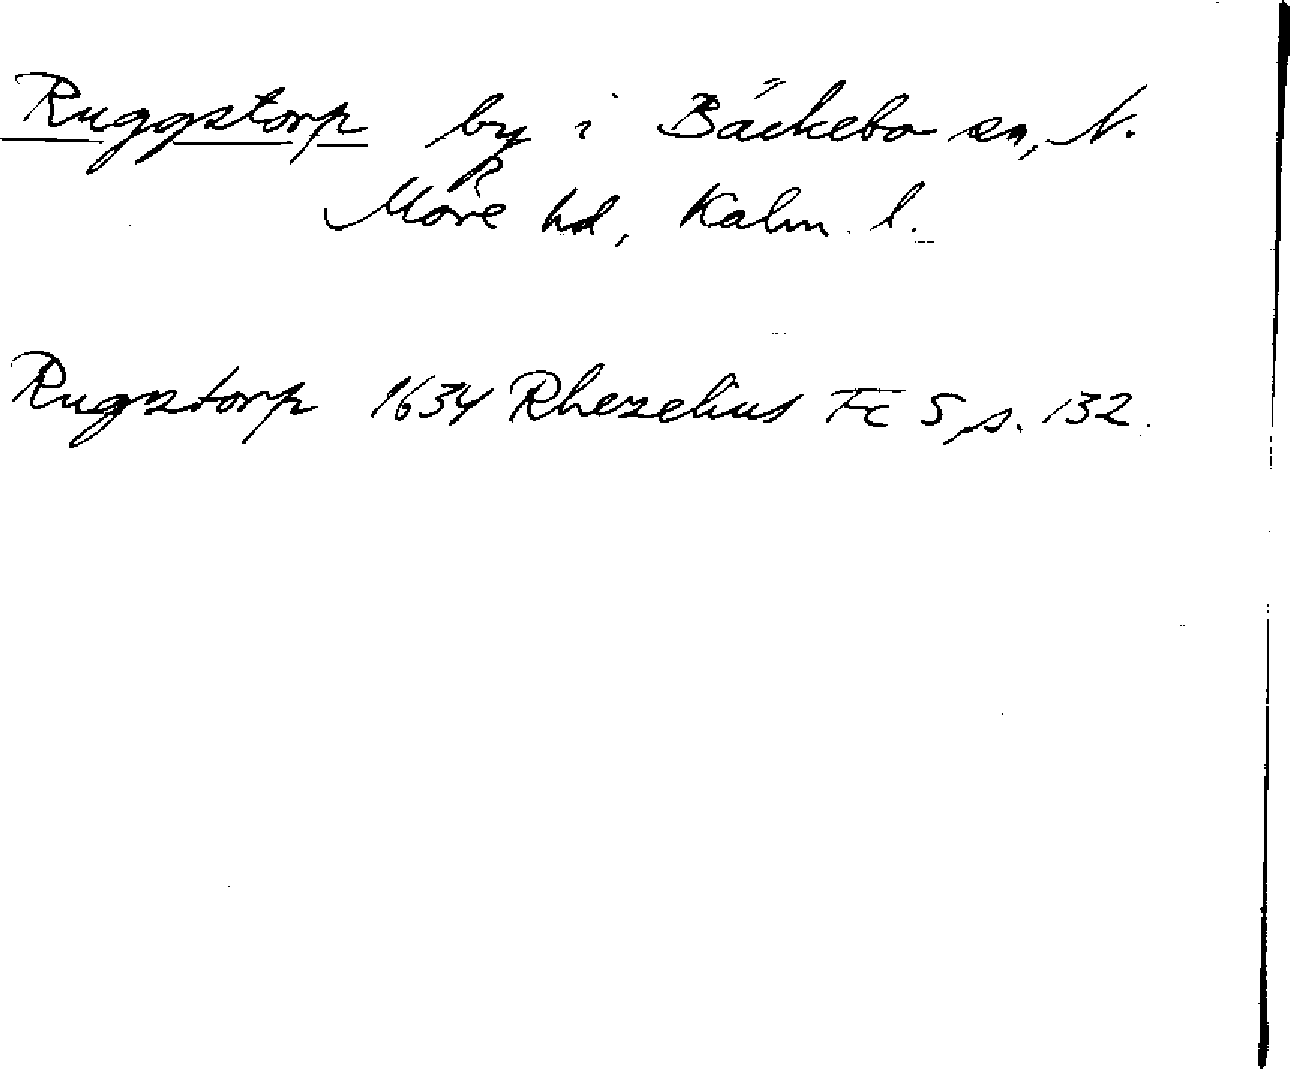 Ruggstorp by i Bäckebo sn, N.
Möre hd, Kalm. l.
Rugstorp 1634 Rhezelius Fc 5, s. 132.